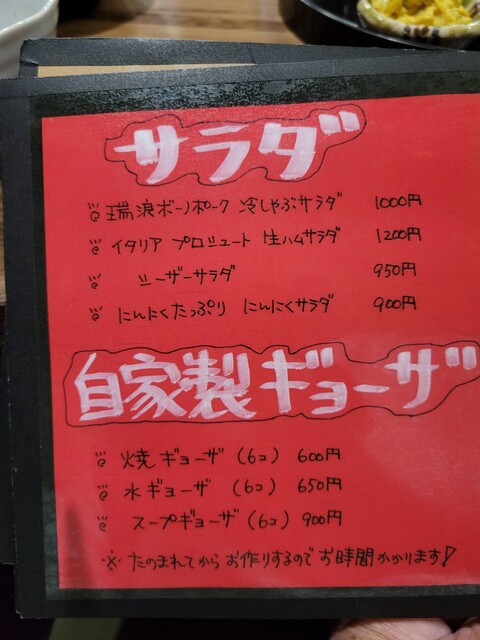 サラダ
瑞浪ボーノポーク 冷しゃぶサラダ 1000円
イタリア プロシュート 生ハムサラダ 1200円
シーザーサラダ 950円
にんにくたっぷり にんにくサラダ 900円
自家製ギョーザ
焼ギョーザ (6コ) 600円
水ギョーザ (6コ) 650円
スープギョーザ (6コ) 900円
※ たのまれてから お作りするので お時間かかります!